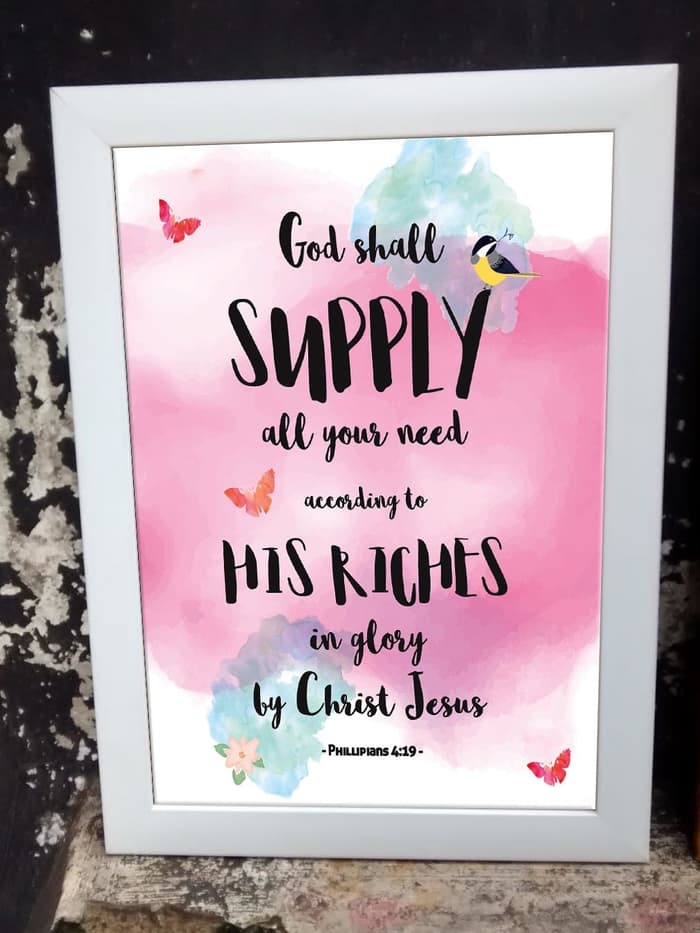 God shall
SUPPLY
all your need
according to
HIS RICHES
in glory
by Christ Jesus
- Phillipians 4:19 -